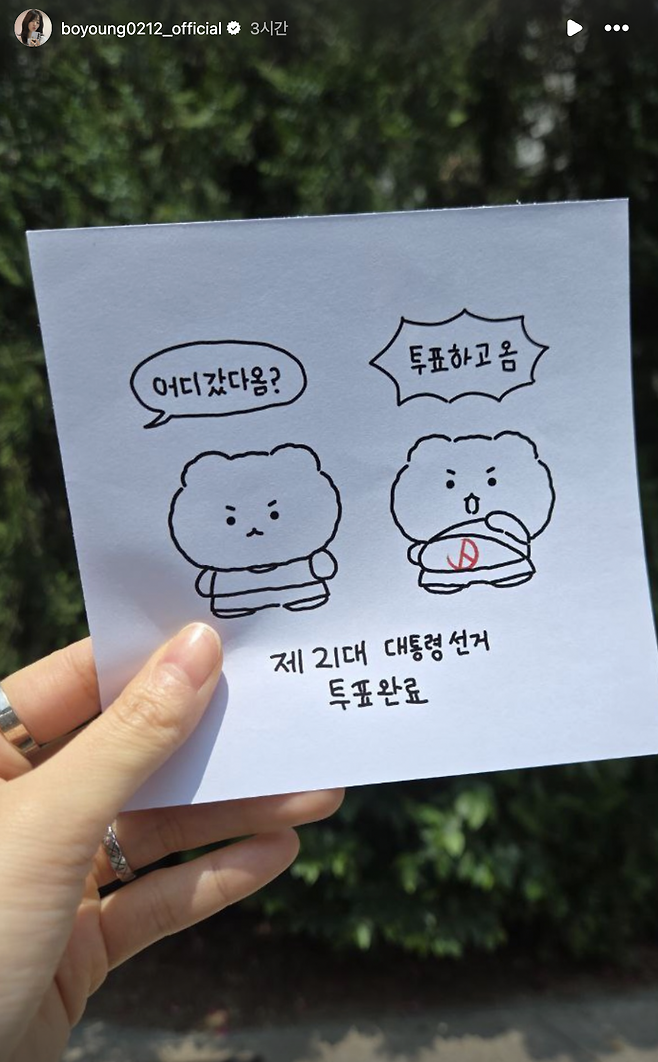 boyoung0212_official 3시간
어디갔다옴?
투표하고 옴
제 21대 대통령선거
투표완료